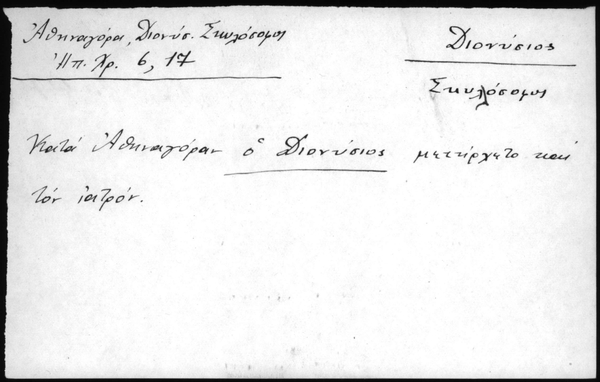 Ἀθηναγόρα, Διονύσ. Σκυλόσοφος
Ἠπ. Χρ. 6, 17
Διονύσιος
Σκυλλόσοφος
Κατά Ἀθηναγόραν ὁ Διονύσιος μετήρχετο καί
τόν ἰατρόν.